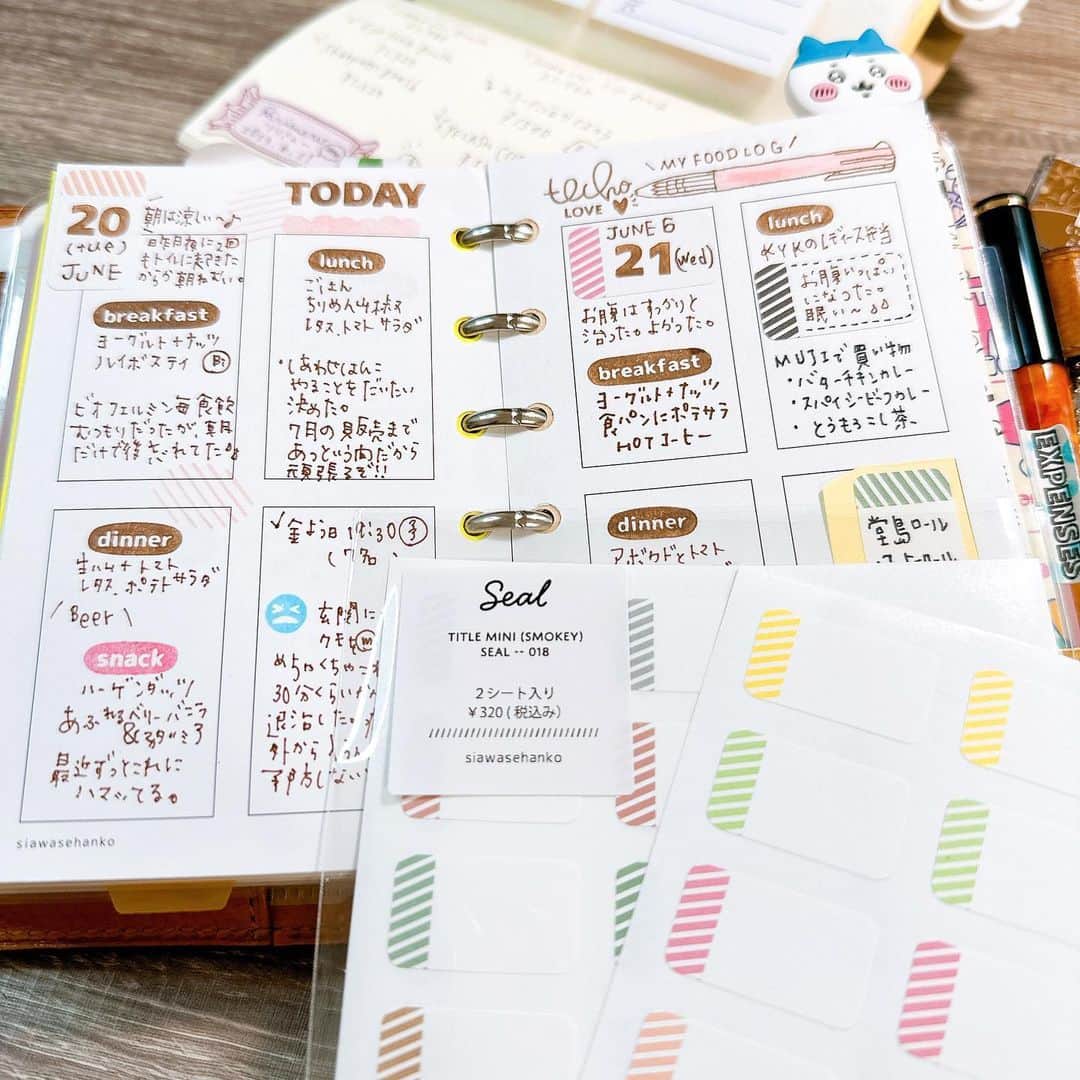 20
(tue)
JUNE
朝は涼しい〜♪
TODAY
breakfast
ヨーグルト+ナッツ
ルイボスティ
ビオフェルミン毎食飲
むつもりだったが、朝
だけで後忘れてた。
lunch
ごはん
ちりめん山椒
レタス、トマト サラダ
・しあわせはんこ
やることをだいたい
決めた。
7月の販売まで
あっという間だから
頑張るぞ!!
dinner
生ハム+トマト
レタス、ポテトサラダ
/Beer\
snack
ハーゲンダッツ
あふれるベリーバニラ
最近ずっとこれに
ハマってる。
金よう日 19:30
玄関に
めちゃくちゃ
30分くらい
退治した。
外から
siawasehanko
techo
LOVE
\ MY FOOD LOG /
JUNE 6
21 (wed)
お腹はすっかりと
治った。よかった。
breakfast
ヨーグルト+ナッツ
食パンにポテサラ
HOTコーヒー
lunch
KYKのレディース弁当
お腹いっぱい
になった。
眠い〜
MUJIで買い物
・バターチキンカレー
・スパイシービーフカレー
・とうもろこし茶
dinner
アボカドとトマト
堂島ロール
EXPENSES
Seal
TITLE MINI (SMOKEY)
SEAL -- 018
2シート入り
¥320(税込み)
siawasehanko